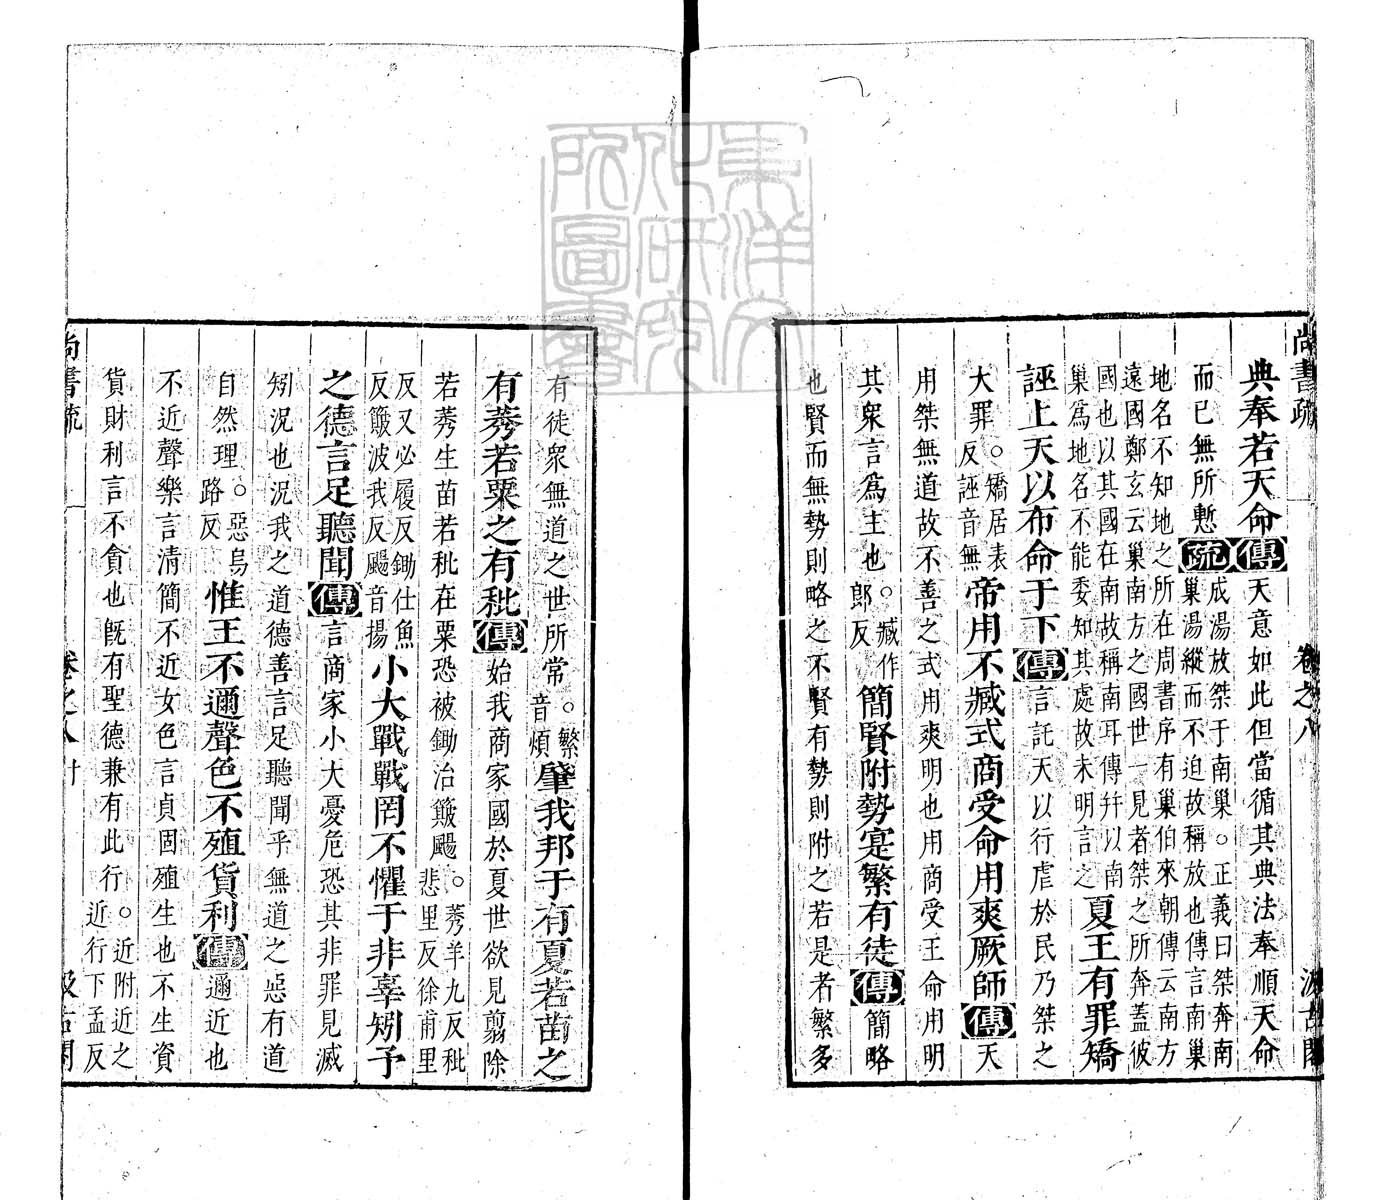 尚書疏 卷之八 汲古閣
典奉若天命傳天意如此但當循其典法奉順天命
而已無所慙疏成湯放桀于南巢。正義曰桀奔南
巢湯縱而不迫故稱放也傳言南巢
地名不知地之所在周書序有巢伯來朝傳云南方
遠國鄭玄云巢南方之國世一見者桀之所奔蓋彼
國也以其國在南故稱南耳傳并以南
巢為地名不能委知其處故未明言之夏王有罪矯
誣上天以布命于下傳言託天以行虐於民乃桀之
大罪。矯居表反誣音無帝用不臧式商受命用爽厥師傳天
用桀無道故不善之式用爽明也用商受王命用明
其眾言為主也。臧作郎反簡賢附勢寔繁有徒傳簡略
也賢而無勢則略之不賢有勢則附之若是者繁多
有徒眾無道之世所常。繁音煩肇我邦于有夏若苗之
有莠若粟之有秕傳始我商家國於夏世欲見翦除
若莠生苗若秕在粟恐被鋤治簸颺。莠羊九反秕悲里反徐甫里
反又必履反鋤仕魚反簸波我反颺音揚小大戰戰罔不懼于非辜矧予
之德言足聽聞傳言商家小大憂危恐其非罪見滅
矧況也況我之道德善言足聽聞乎無道之惡有道
自然理。惡烏路反惟王不邇聲色不殖貨利傳邇近也
不近聲樂言清簡不近女色言貞固殖生也不生資
貨財利言不貪也既有聖德兼有此行。近附近之近行下孟反
尚書疏 卷之八 汲古閣